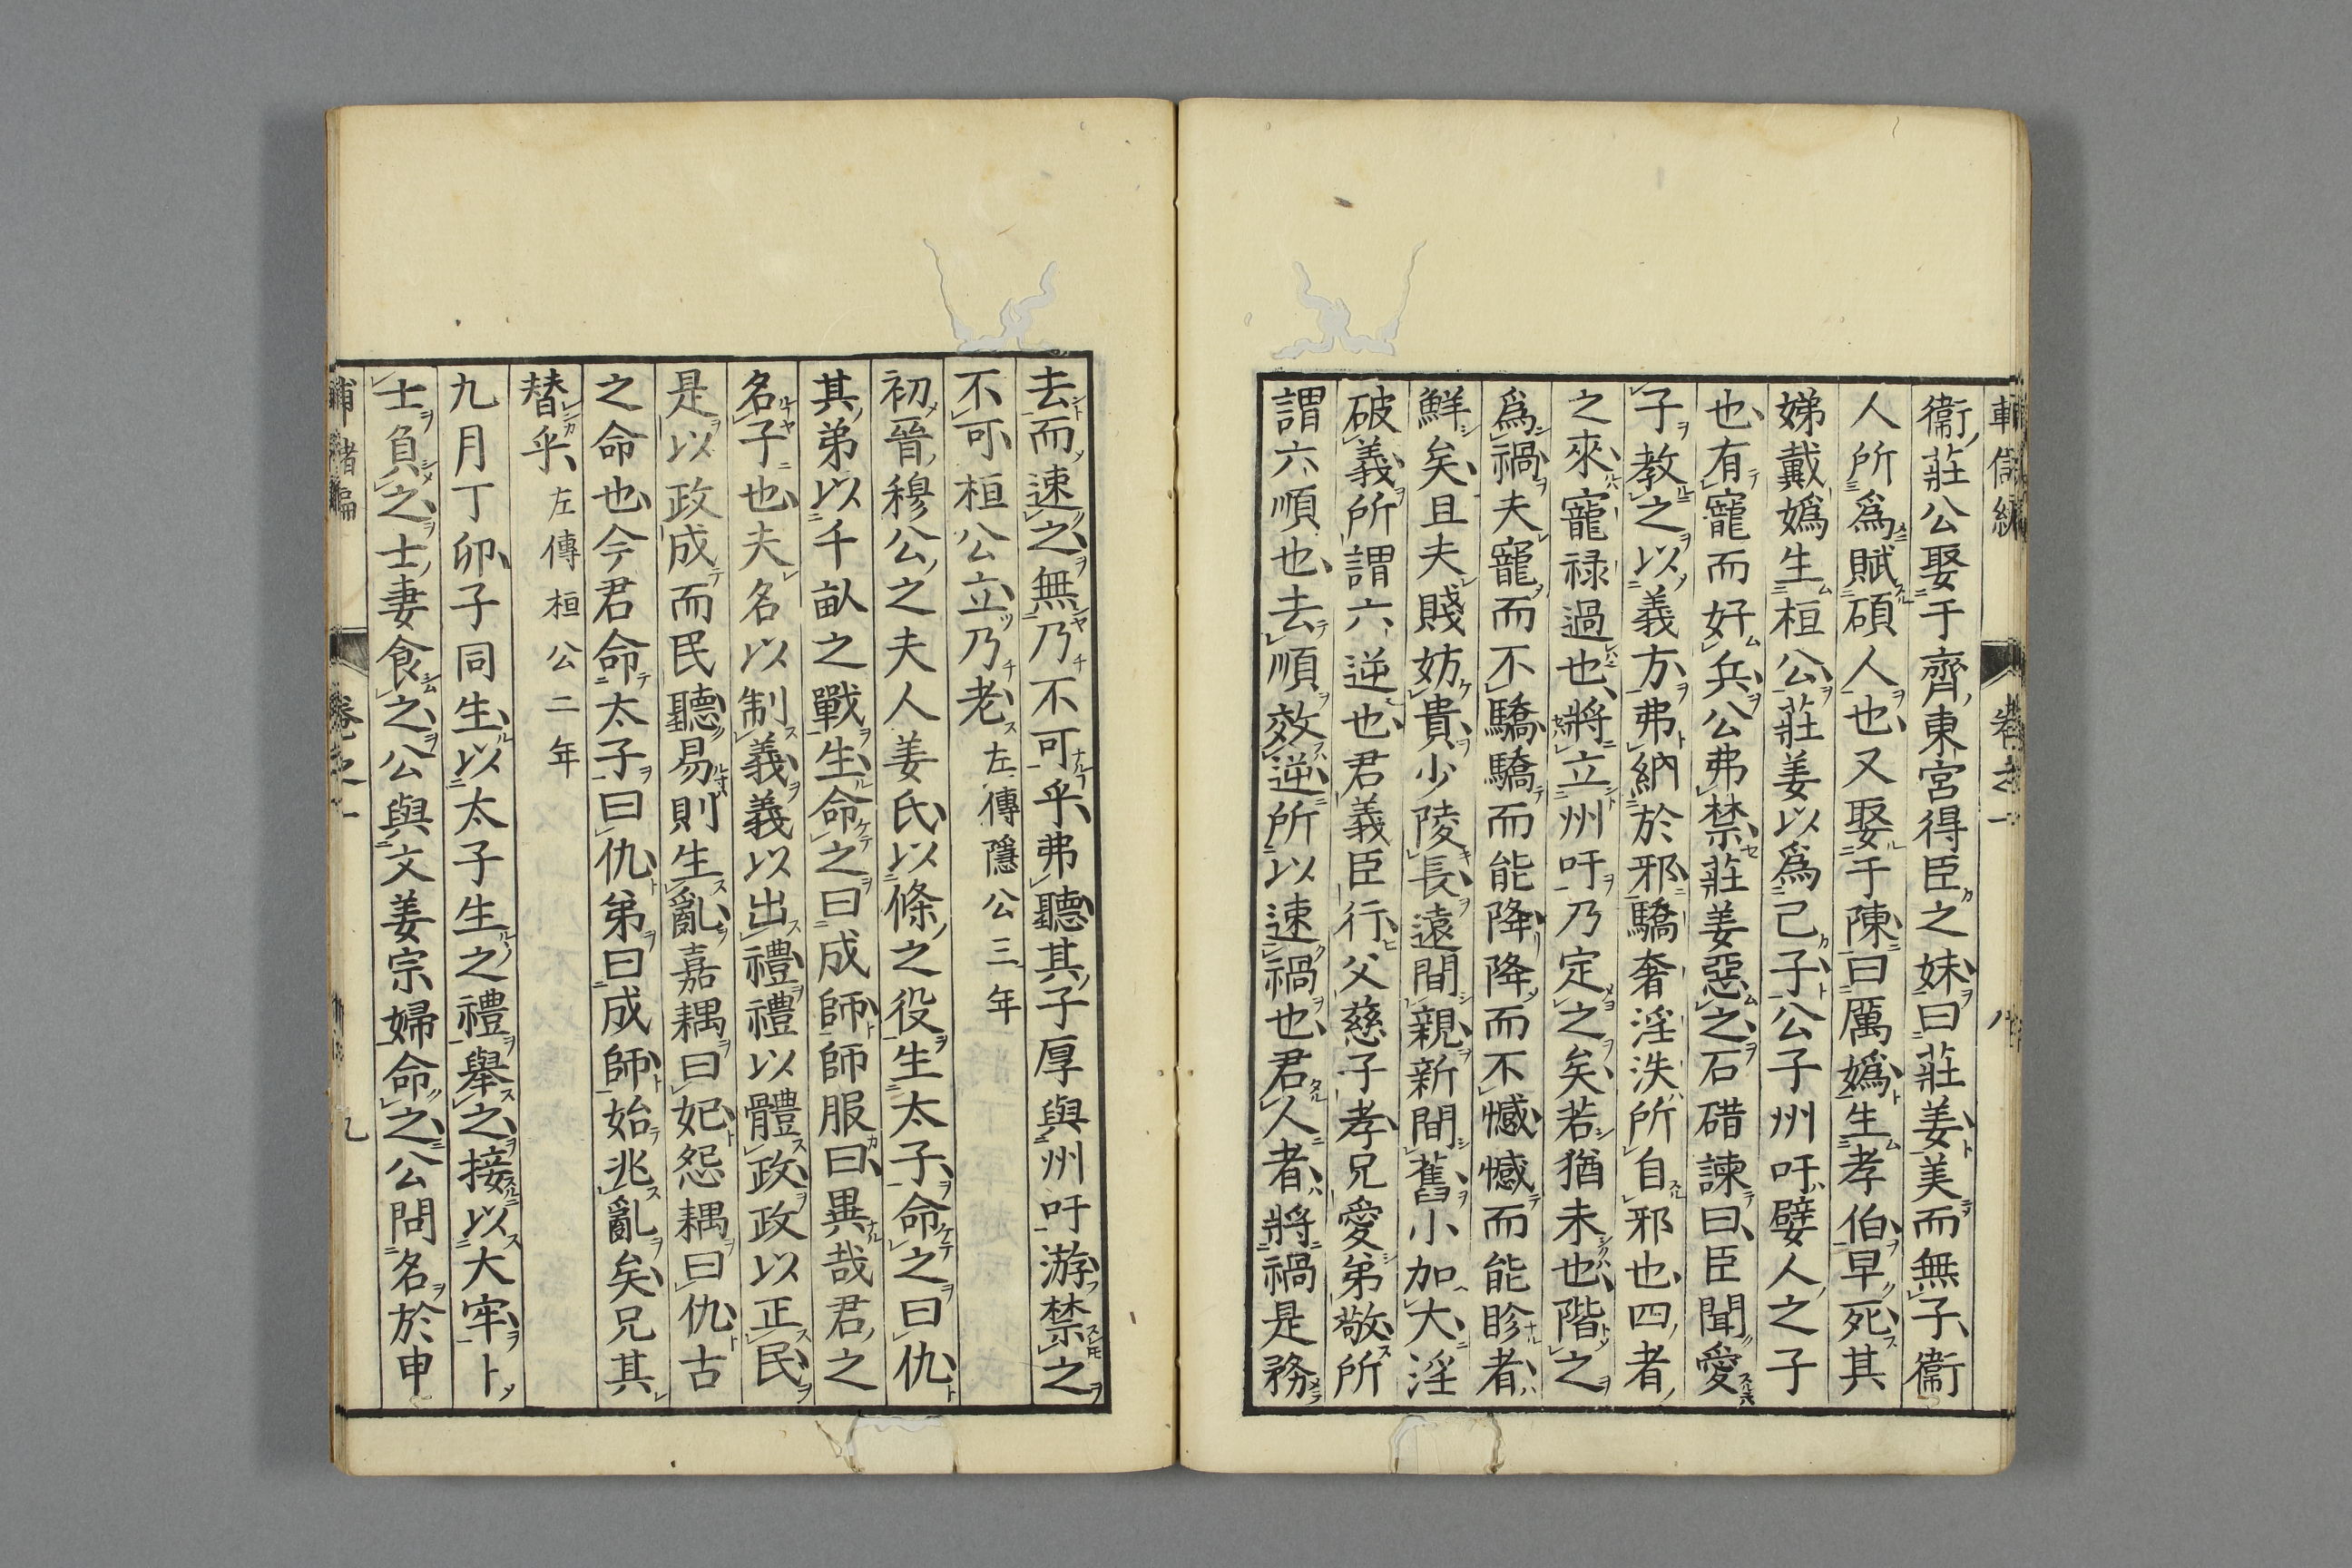 卷之一
衞莊公娶于齊東宮得臣之妹曰莊姜美而無子衞
人所爲賦碩人也又娶于陳曰厲嬀生孝伯早死其
娣戴嬀生桓公莊姜以爲己子公子州吁嬖人之子
也有寵而好兵公弗禁莊姜惡之石碏諫曰臣聞愛
子教之以義方弗納於邪驕奢淫泆所自邪也四者
之來寵祿過也將立州吁乃定之矣若猶未也階之
爲禍夫寵而不驕驕而能降降而不憾憾而能眕者
鮮矣且夫賤妨貴少陵長遠間親新間舊小加大淫
破義所謂六逆也君義臣行父慈子孝兄愛弟敬所
謂六順也去順效逆所以速禍也君人者將禍是務
去而速之無乃不可乎弗聽其子厚與州吁游禁之
不可桓公立乃老左傳隱公三年
初晉穆公之夫人姜氏以條之役生太子命之曰仇
其弟以千畝之戰生命之曰成師師服曰異哉君之
名子也夫名以制義義以出禮禮以體政政以正民
是以政成而民聽易則生亂嘉耦曰妃怨耦曰仇古
之命也今君命太子曰仇弟曰成師始兆亂矣兄其
替乎左傳桓公二年
九月丁卯子同生以太子生之禮舉之接以大牢卜
士負之士妻食之公與文姜宗婦命之公問名於申
卷之一
九